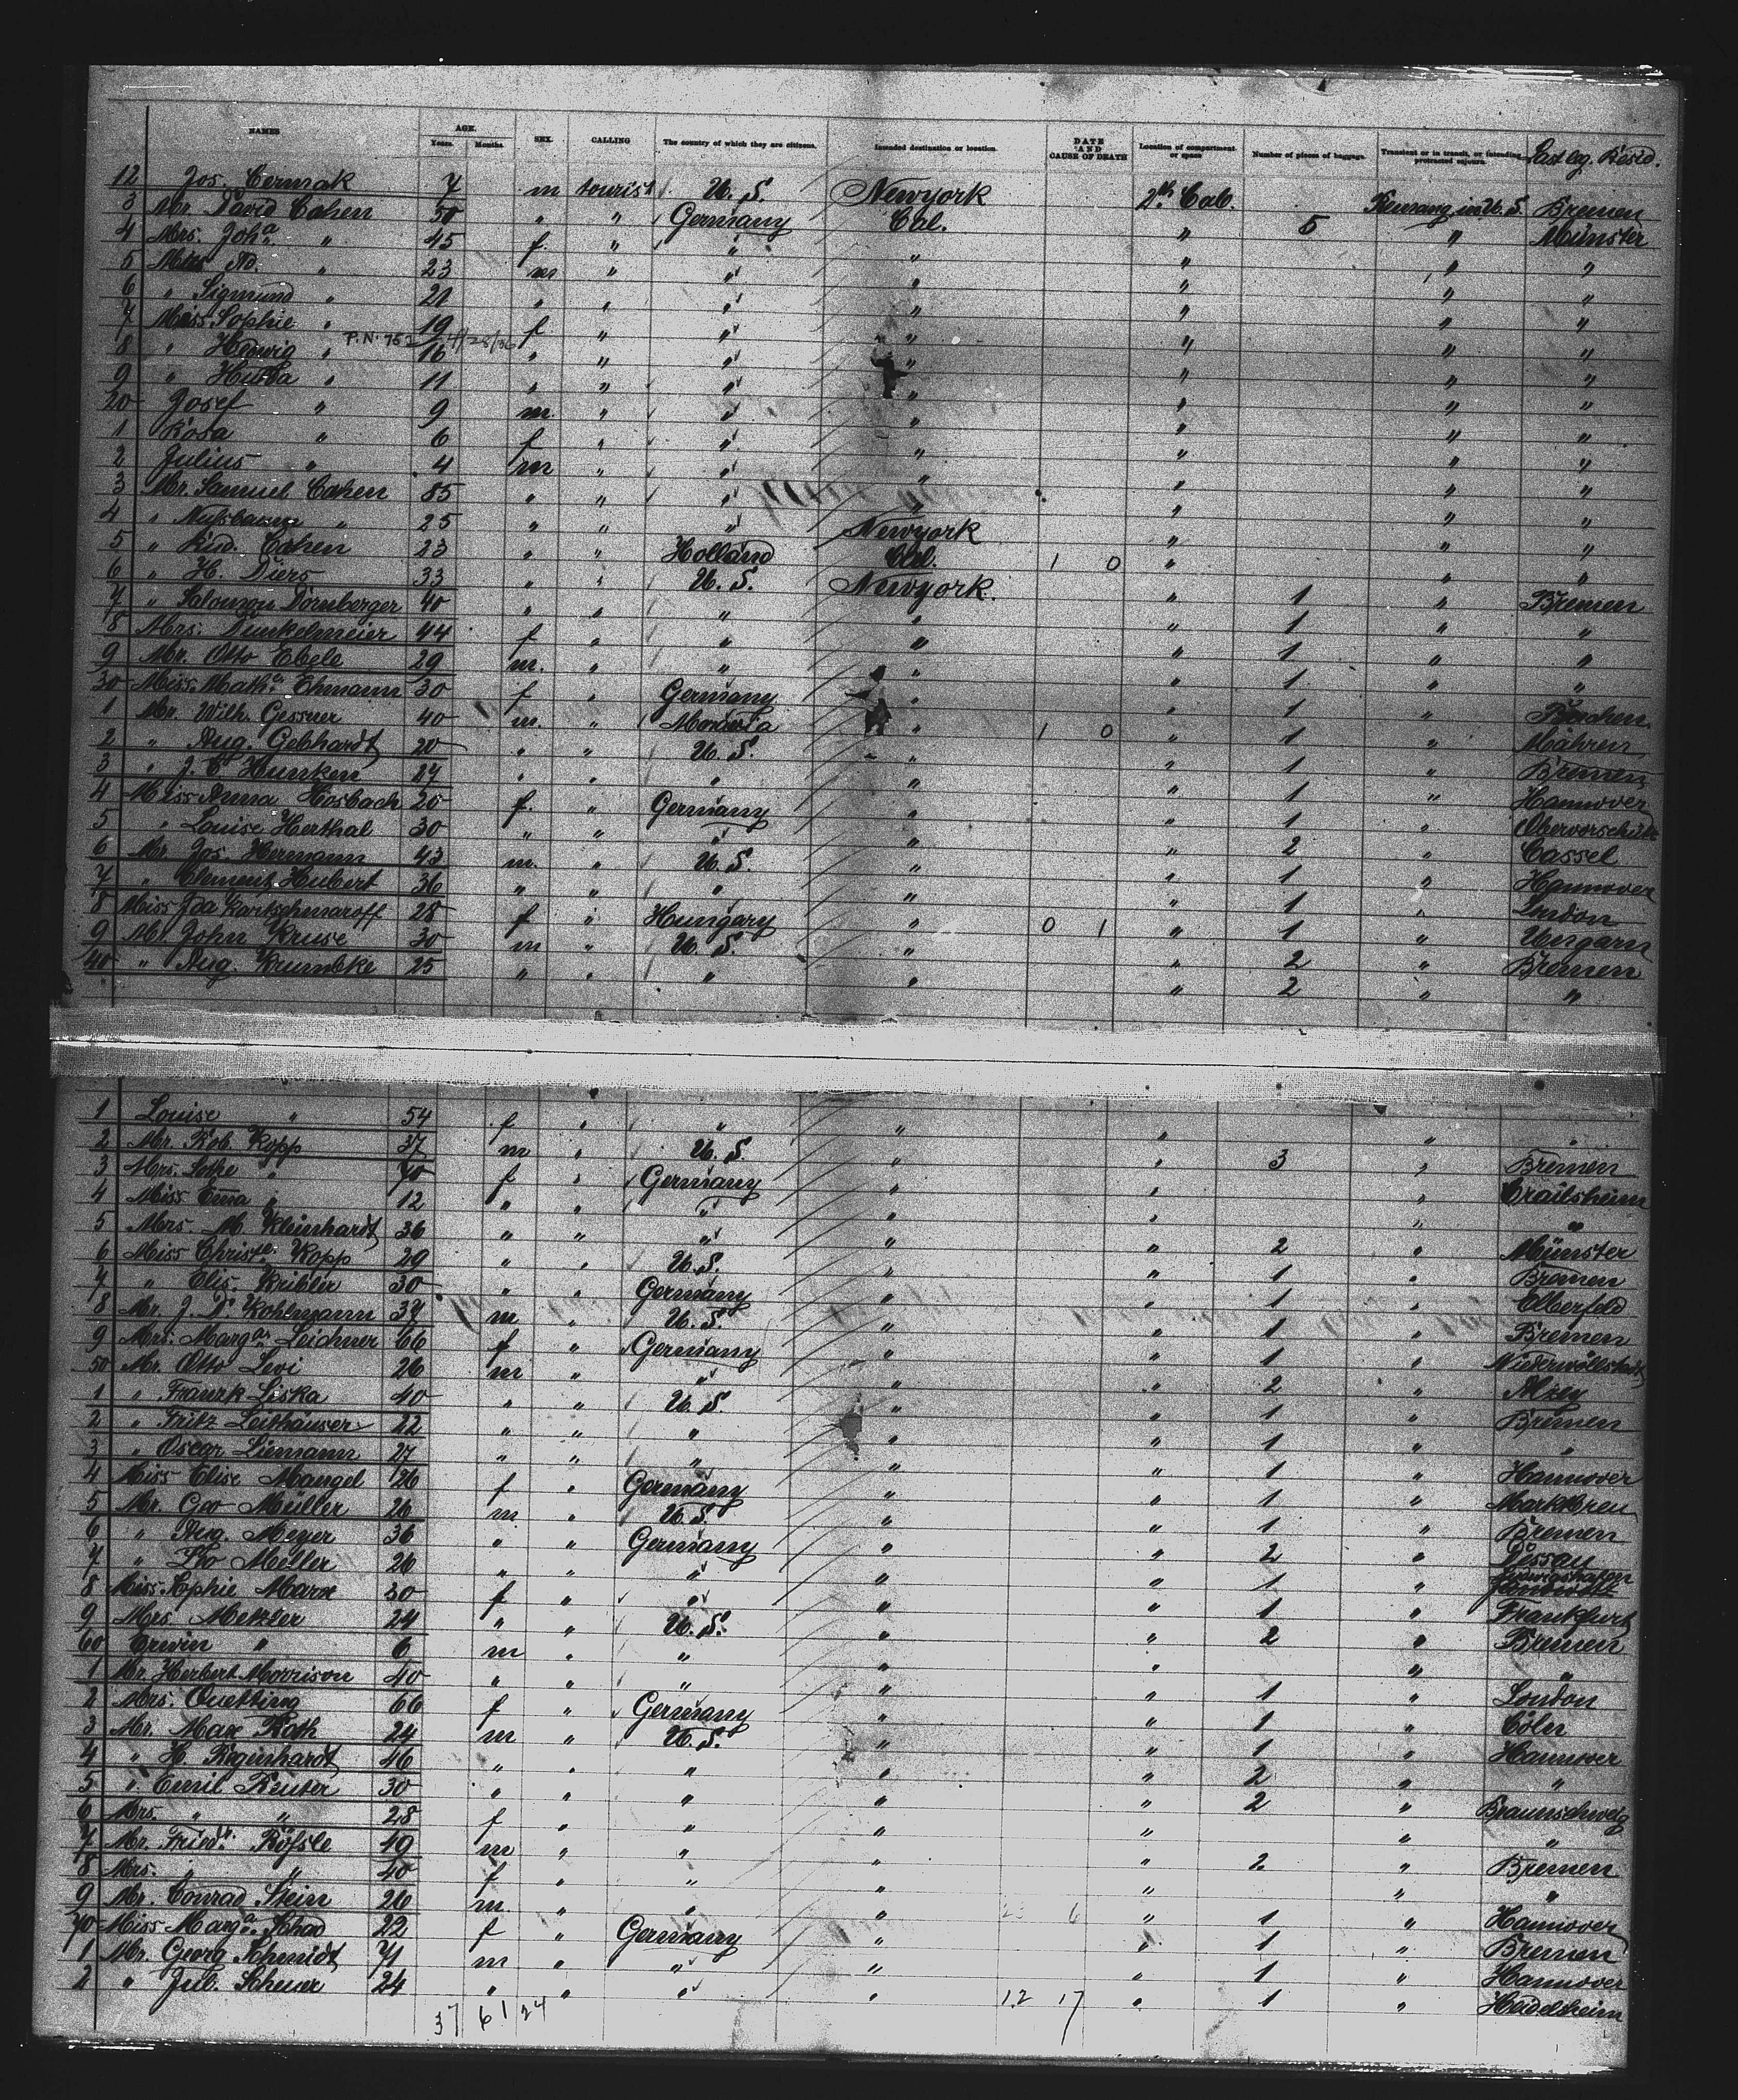 NAMES AGE. Years. Months. SEX. CALLING The country of which they are citizens. Intended destination or location. DATE AND CAUSE OF DEATH Location of compartment or space Number of pieces of baggage. Transient or in transit, or intending protracted sojourn. Last leg. Resid.
12 Jos. Cermak 7 m tourist U. S. Newyork 2th Cab. in U. S. Bremen
3 Mr. David Cohen 50 " " Germany Cal. " 5 " Münster
4 Mrs. Joha " 45 f. " " " " " "
5 Ad. " 23 m " " " " " "
6 " Sigmund " 21 " " " " " " "
7 Miss Sophie " 19 f " " " " " "
8 " Hedwig " P.N. 16 " " " " " " "
9 " " 11 " " " " " " "
20 Josef " 9 m. " " " " " "
1 Rosa " 6 f " " " " " "
2 Julius " 4 m " " " " " "
3 Mr. Samuel Cohen 85 " " " " " " "
4 " Nußbaum " 25 " " " Newyork " " "
5 " Cohen 23 " " Holland Cal. 1 0 " " "
6 " H. Diers 33 " " U. S. Newyork. " 1 " Bremen
7 " Salomon Dornberger 40 " " " " " 1 " "
8 Mrs. Dunkelmeier 44 f " " " " 1 " "
9 Mr. Otto Ebele 29 m. " " " " 1 " "
30 Miss Matha Ehmann 30 f " Germany " " 1 "
1 Mr. Wilh. Gessner 40 m. " Moravia " 1 0 " 1 " Mähren
2 " Aug. Gebhardt 20 " " U. S. " " 1 " Bremen
3 " J. C. Hunken 27 " " " " " 1 " Hannover
4 Miss Anna Hosbach 20 f. " Germany " " 1 " Obervorschütz
5 " Louise Herthal 30 " " " " " 2 " Cassel
6 Mr. Jos. Hermann 43 m. " U. S. " " 1 " Hannover
7 " Clement Hubert 36 " " " " " 1 " London
8 Miss Ida Kartschmaroff 28 f " Hungary " 0 1 " 1 " Ungarn
9 Mr. John Kruse 30 m " U. S. " " 2 " Bremen
40 " Aug. Krumbke 25 " " " " " 2 " "
1 Louise " 54 f " " " " " "
2 Mr. Rob Kopp 37 m " U. S. " " 3 " Bremen
3 Mrs. " 70 f " Germany " " " Crailsheim
4 Miss Ema " 12 " " " " " " "
5 Mrs. M. Kleinhardt 36 " " " " " 2 " Münster
6 Miss Christe. Kopp 29 " " U. S. " " 1 " Bremen
7 " Elis. Kribler 30 " " Germany " " 1 " Elberfeld
8 Mr. J. D. Kohlmann 37 m " U. S. " " 1 " Bremen
9 Mrs. Marga. Leichner 66 f " Germany " " 1 " Niederwöllstadt
50 Mr. Otto Levi 26 m " " " " 2 " Alzey
1 " Frank Liska 40 " " U. S. " " 1 " Bremen
2 " Fritz Leithauser 22 " " " " " 1 " "
3 " Oscar Liemann 27 " " " " " 1 " Hannover
4 Miss Elise Mangel 26 f " Germany " " 1 "
5 Mr. Geo Müller 26 m " U. S. " " 1 " Bremen
6 " Aug. Meyer 36 " " Germany " " 2 " Dessau
7 " Tho Meller 26 " " " " " 1 " Ludwigshafen
8 Miss Sophie Marx 30 f " " " " 1 " Frankfurt
9 Mrs Metzler 24 " " U. S. " " 2 " Bremen
60 Erwin " 6 m " " " " " "
1 Mr. Herbert Morrison 40 " " " " " 1 " London
2 Mrs. Quetting 66 f " Germany " " 1 " Cöln
3 Mr. Max Roth 24 m " U. S. " " 1 " Hannover
4 " H. Reginhardt 46 " " " " " 2 " "
5 " Emil Reuter 30 " " " " " 2 " Braunschweig
6 Mrs. " " 28 f " " " " " "
7 Mr. Friedr. Rößle 49 m " " " " 2. " Bremen
8 Mrs. " " 40 f " " " " " "
9 Mr. Conrad Stein 26 m. " " " " 1 " Hannover
70 Miss Marga. Schad 22 f " Germany " " 1 " Bremen
1 Mr. Georg Schmidt 71 m " " " " 1 " Hannover
2 " Jul. Scheuer 24 " " " " 12 17 " 1 " Heidelsheim
37 61 24